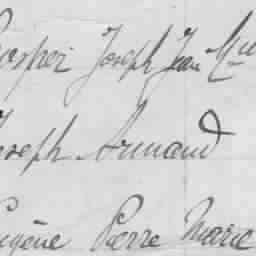 Prosper Joseph Jean
Joseph Armand
Eugène Pierre Marie